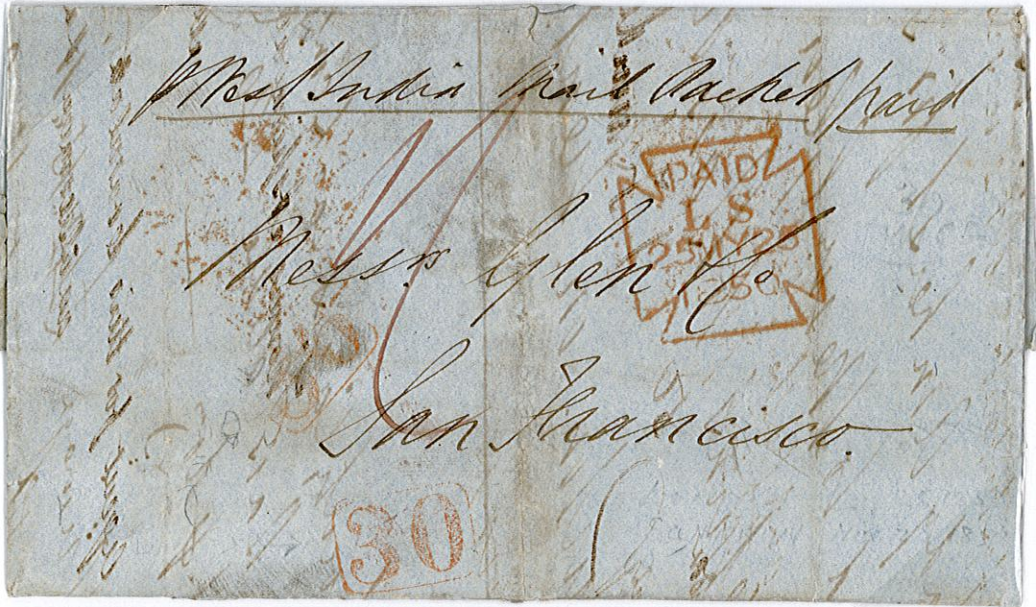 p West India Mail Packet paid
PAID
L S
25 MY 25
1850
Messrs Glen & Co
San Francisco.
30